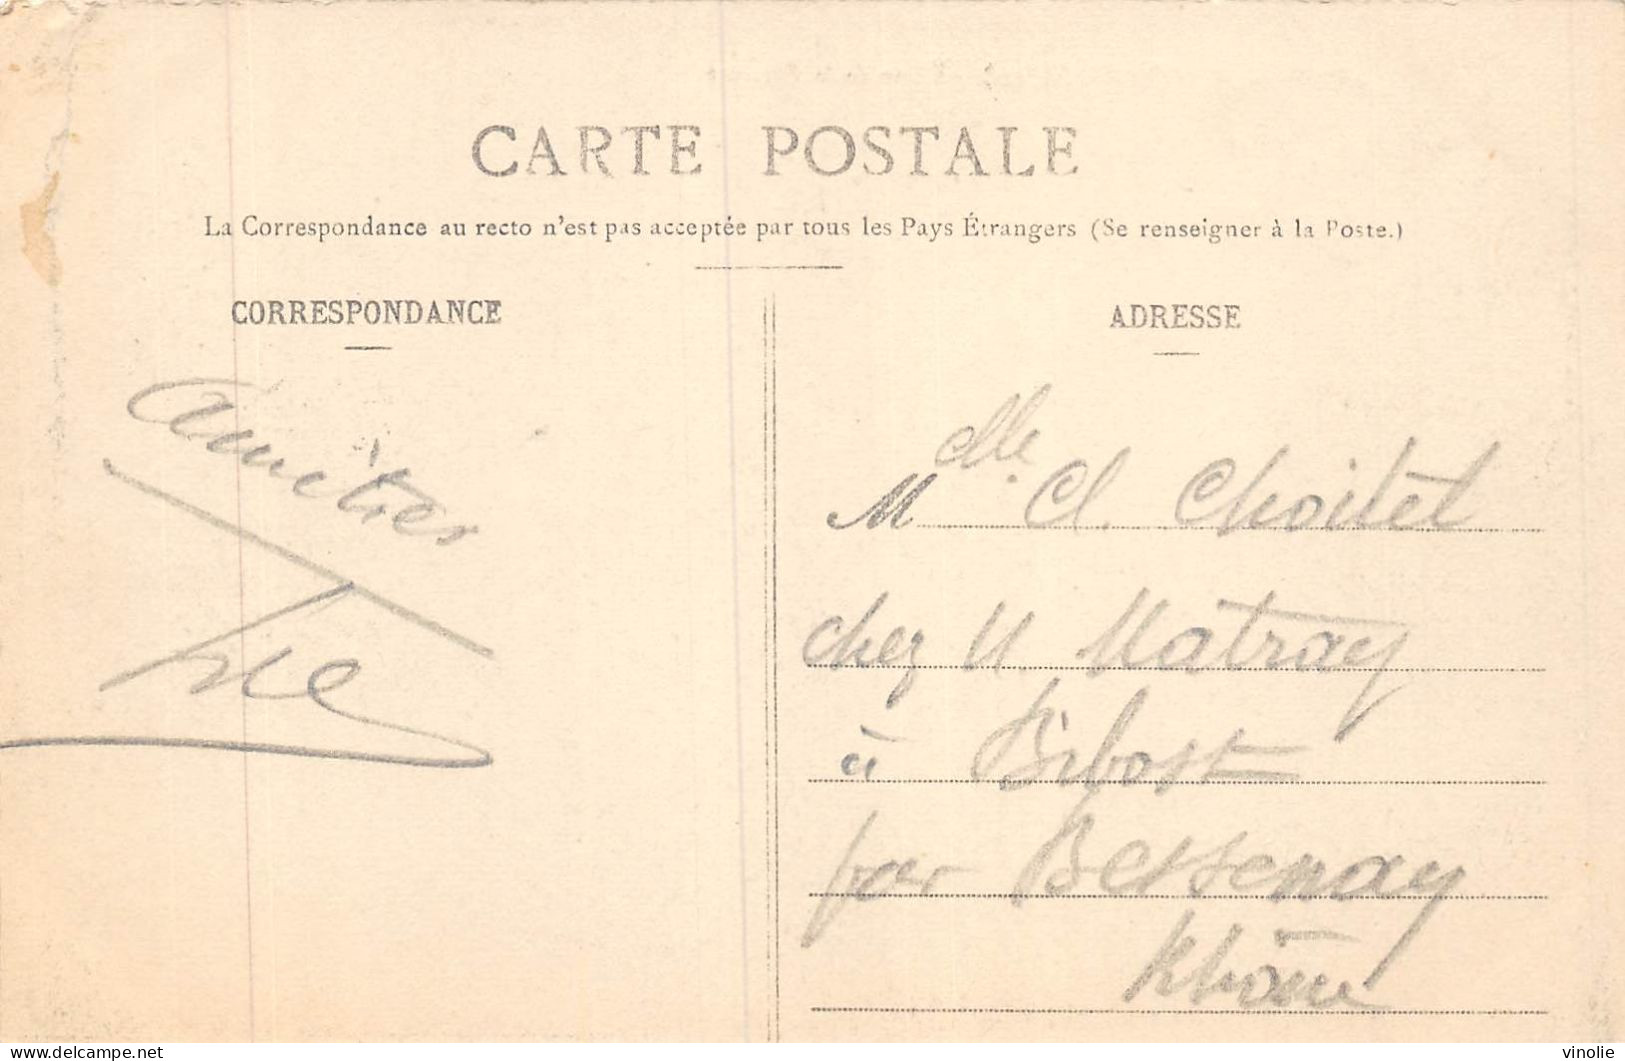 CARTE POSTALE
La Correspondance au recto n'est pas acceptée par tous les Pays Étrangers (Se renseigner à la Poste.)
CORRESPONDANCE
Amitiés
ADRESSE
Mlle. Cl. Choitel
chez M. Matray
à Bibost
par Bessenay
Rhône
delcampe.net
vinolie